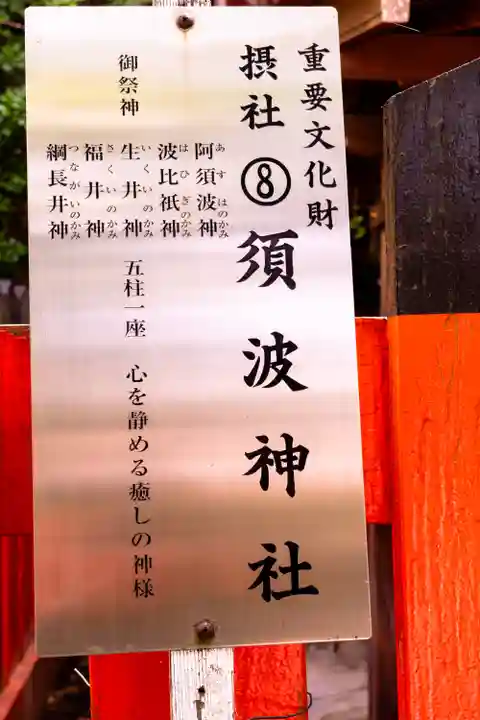 重要文化財
摂社 ⑧ 須波神社
御祭神
阿須波神
あすはのかみ
波比祇神
はひぎのかみ
生井神
いくいのかみ
福井神
さくいのかみ
綱長井神
つながいのかみ
五柱一座 心を静める癒しの神様